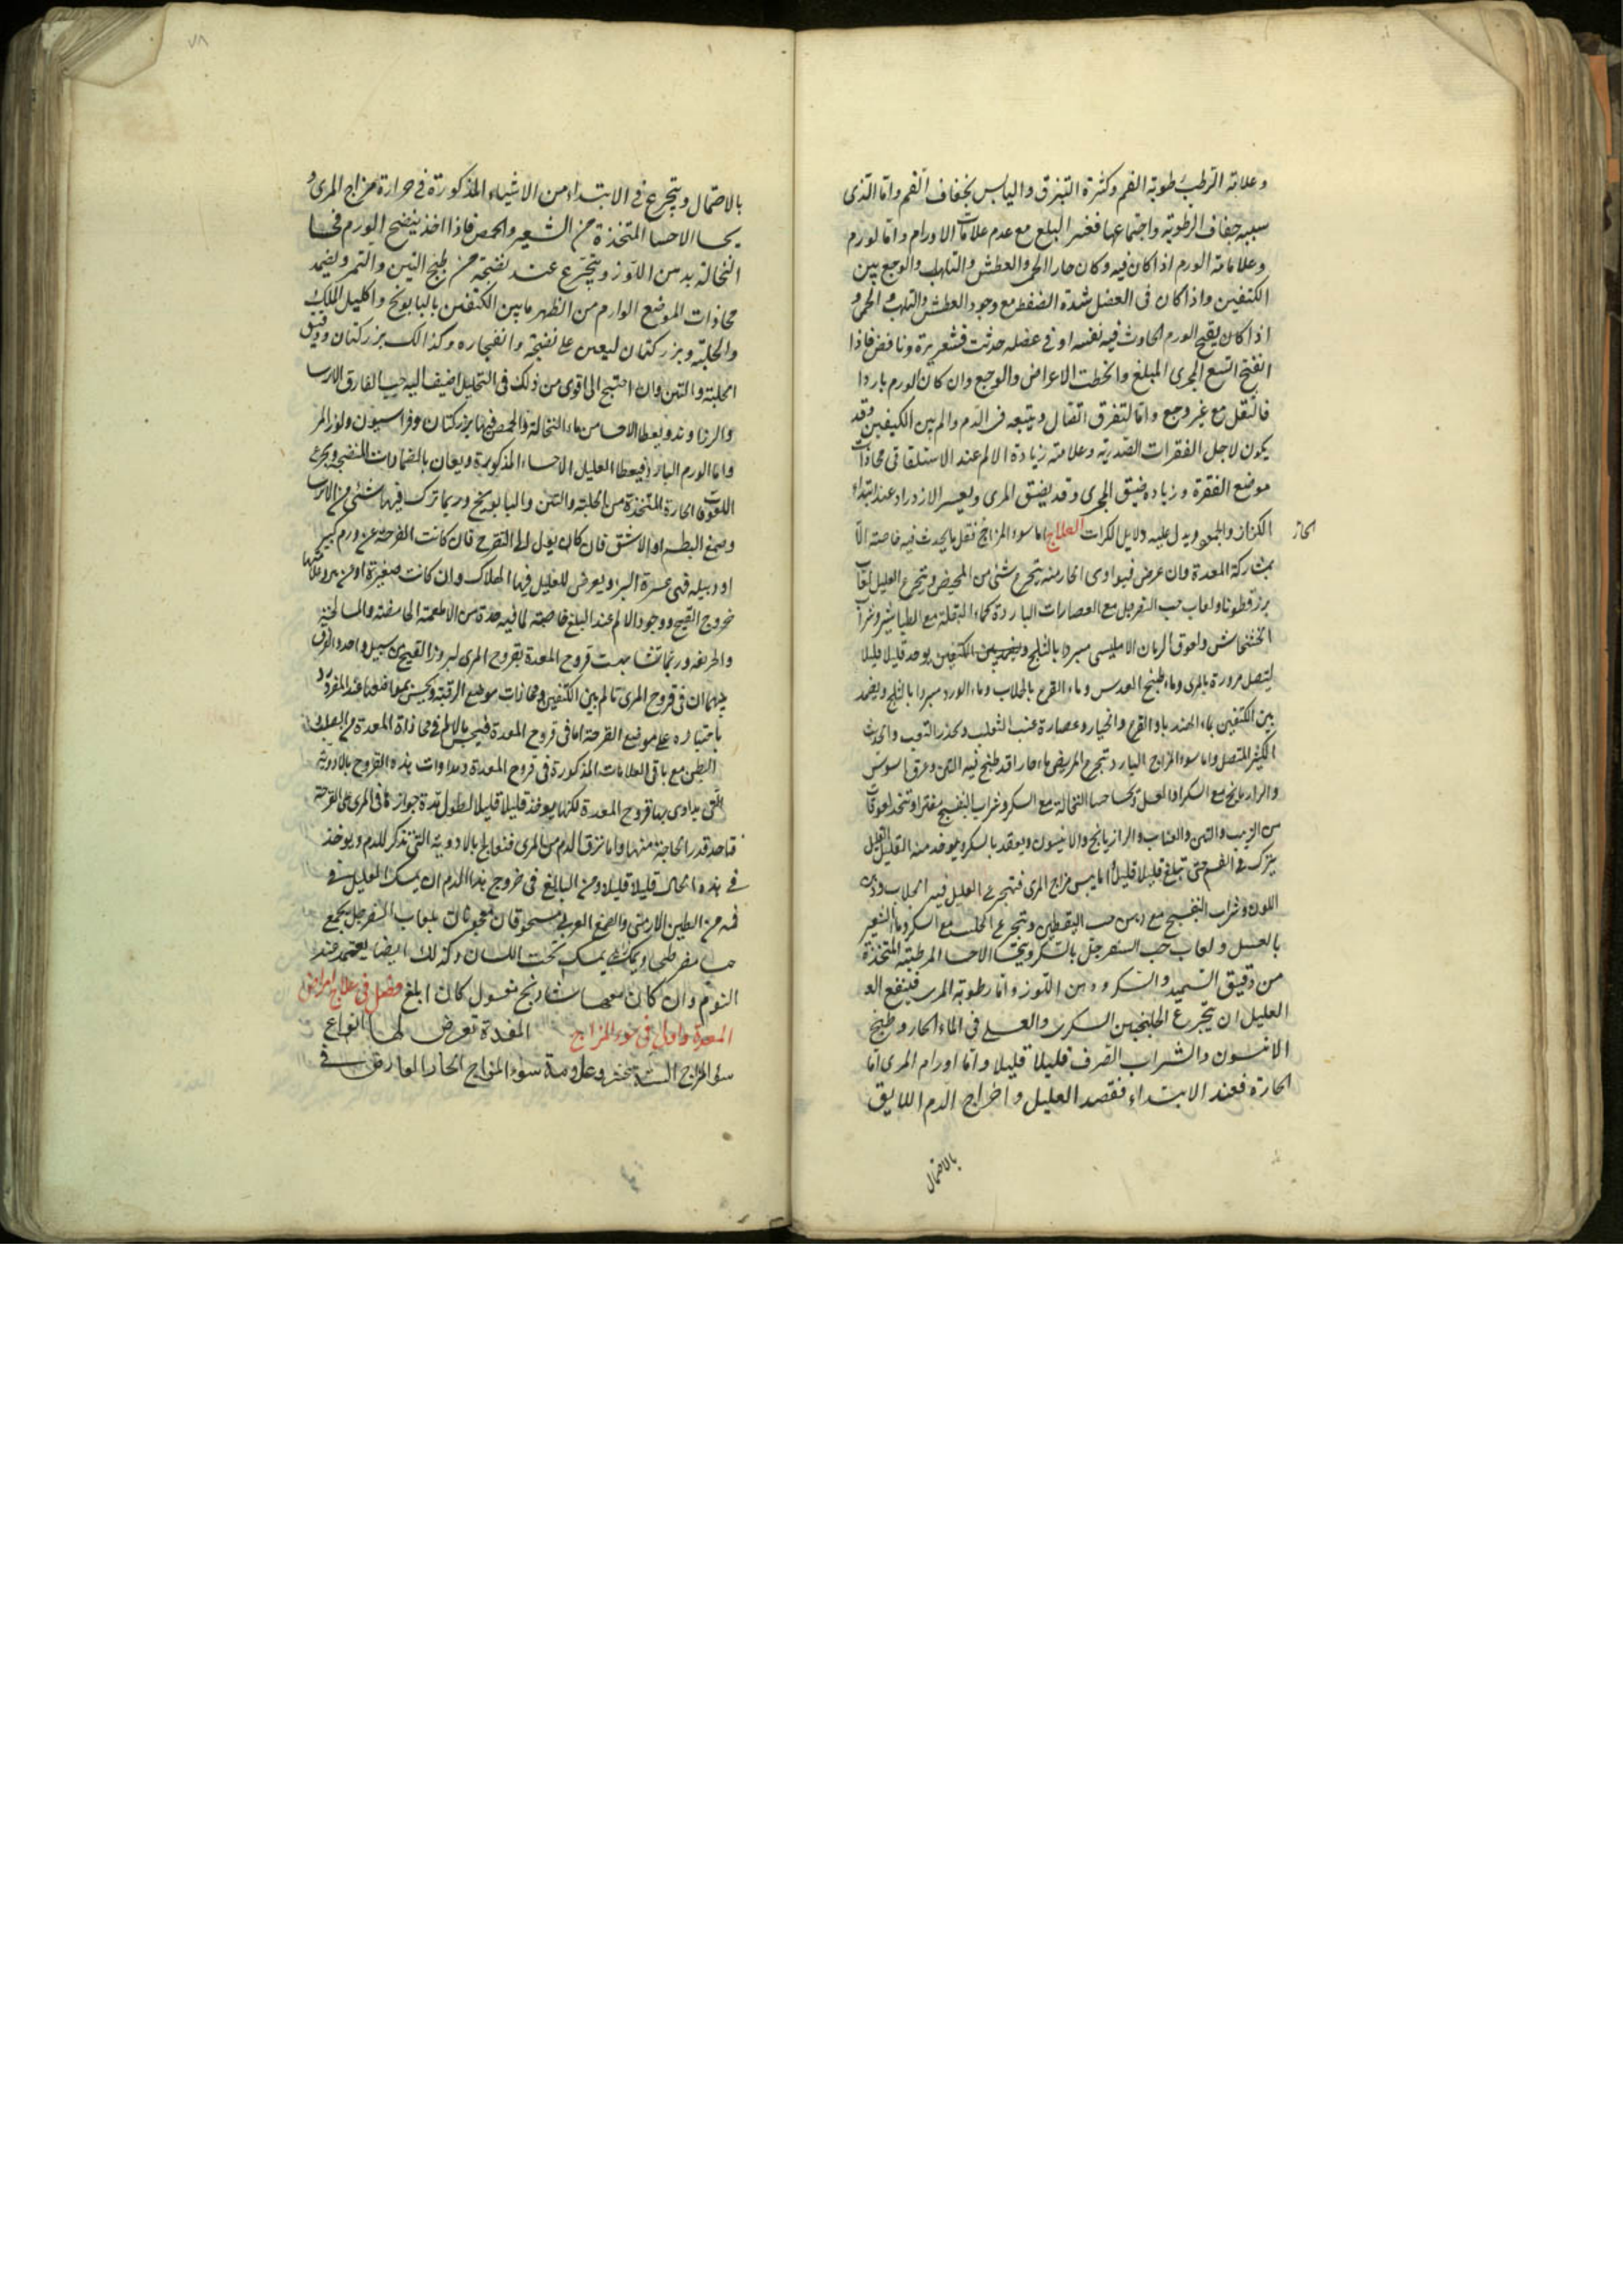 وعلامة الرطب رطوبة الفم وكثرة التبزق واليابس بجفاف الفم واما الذى
سببه جفاف الرطوبة واجتماعها فعسر البلع مع عدم علامات الاورام واما لورم
وعلامات الورم اذا كان فيه وكان حارا الحمى والعطش والتلهب والوجع بين
الكتفين واذا كان فى العضل شدة الضغط مع وجود العطش والتلهب والحمى و
اذا كان يقيح الورم الحادث فيه نفسه او فى عضله حدثت قشعريرة ونافض فاذا
انفتح اتسع المجرى المبلغ وانحطت الاعراض والوجع وان كان الورم باردا
فالثقل مع غير وجع واما لتفرق اتصال ويتبعه الدم والم بين الكتفين وقد
يكون لاجل الفقرات الصدرية وعلامته زيادة الالم عند الاستلقا فى محاذات
موضع الفقرة وزياده ضيق المجرى وقد يضيق المرى ويعسر الازدراد عند ابتداء
الكزاز والجمود ويدل عليه دلايل العلاج اما سوء المزاج فقل ما يحدث فيه خاصته الا
بمشاركة المعدة وان عرض فيداوى الحار منه بتجرع شئ من المخيض ويتجرع العليل لعاب
بزرقطونا ولعاب حب السفرجل مع العصارات الباردة كماء البقلة مع الطباشير وشراب
الخشخاش ولعوق الرمان الامليسى مبردا بالثلج ويضمد بين الكتفين يوخذ قليلا قليلا
ليتصل مروره بالمرى وماء طبيخ العدس وماء القرع بالجلاب وماء الورد مبردا بالثلج ويضمد
بين الكتفين بماء الهندباء والقرع والخيار وعصارة عنب الثعلب ويحذر التعب والحديث
الكثير المتصل واما سوء المزاج البارد يتجرع المريض ماء حارا قد طبخ فيه التين وعرق السوس
والرازيانج مع السكر او العسل ويحسا حسا النخالة مع السكر وشراب البنفسج مفترا ويتخذ لعوقات
من الزبيب والتين والعناب والرازيانج والانيسون ويعقد بالسكر ويوخذ منه القليل القليل
يترك فى الفم حتى تبلع قليلا قليلا اما يبس مزاج المرى فيتجرع العليل فيه الجلاب ودهن
اللوز وشراب البنفسج مع دهن حب اليقطين ويتجرع الحليب مع السكر وماء الشعير
بالعسل ولعاب حب السفرجل بالسكر ويتحسا الاحسا المرطبة المتخذة
من دقيق السميد والسكر ودهن اللوز واما رطوبة المرى فينفع الع
العليل ان يتجرع الجلنجبين السكرى والعسلى فى الماء الحار وطبيخ
الانيسون والشراب الصرف قليلا قليلا واما اورام المرى اما
الحارة فعند الابتداء ففصد العليل واخراج الدم اللايق
بالاحتمال
بالاحتمال ويتجرع فى الابتداء من الاشياء المذكورة فى حرارة مزاج المرى و
يحسا الاحسا المتخذة من الشعير والحمص فاذا اخذ ينضج الورم فحسا
النخالة بدهن اللوز ويتجرع عند نضجه من طبيخ التين والتمر ويضمد
محاذات الموضع الوارم من الظهر ما بين الكتفين بالبابونج واكليل الملك
والحلبة وبزر كتان ليعين على نضجه وانفجاره وكذالك بزر كتان ودقيق
الحلبة والتين وان احتيج الى اقوى من ذلك فى التحليل اضيف اليه حب الغار والايرسا
والزراوند ويعطا الاحسا من ماء النخالة والحمص فيها بزر كتان وفراسيون ولوز المر
واما الورم البارد فيعطا العليل الاحساء المذكورة ويعان بالضمادات المنضجة ويجرع
اللعوقات الحارة المتخذة من الحلبة والتين والبابونج وربما ترك فيها شئ من الايرسا
وصمغ البطم او الاشق فان كان يول الى التقرح فان كانت القرحة عن ورم كبير
او دبيله فهى عسرة البر ويعرض للعليل فيها الهلاك وان كانت صغيرة او من برد علامتها
خروج القيح ووجود الالم عند البلع خاصة لما فيه حدة من الاطعمة الحامضة والمالحة
والحريفه وربما تشابهت قروح المعدة بقروح المرى لبروز القيح من سبيل واحد والفرق
بينهما ان فى قروح المرى تالم بين الكتفين ومحاذات موضع الرقبة ويحس
باجتيازه على موضع القرحة اما فى قروح المعدة فيحس بالالم فى محاذاة المعدة من
البطن مع باقى العلامات المذكورة فى قروح المعدة ومداوات هذه القروح بالادوية
التى يداوى بها قروح المعدة لكنها يوخذ قليلا قليلا لطول مدة جوازها فى المرى على القرحة
فتاخذ قدر الحاجة منها واما نزف الدم من المرى فتعالج بالادوية التى تذكر للدم ويوخذ
فى هذه الحال قليلا قليلا ومن البالغ فى خروج هذا الدم ان يمسك العليل فى
فمه من الطين الارمنى والصمغ العربى مسحوقان معجونان بلعاب السفرجل يجمع
حبا مفرطحا ويمسك تحت اللسان وكذلك ايضا يعتمد عند
النوم وان كان معهما شاذنج مغسول كان ابلغ فصل فى علاج امراض
المعدة واول فى سوء المزاج المعدة تعرض لها انواع
سوء المزاج الستة عشر وعلامة سوء المزاج الحار العارض فى